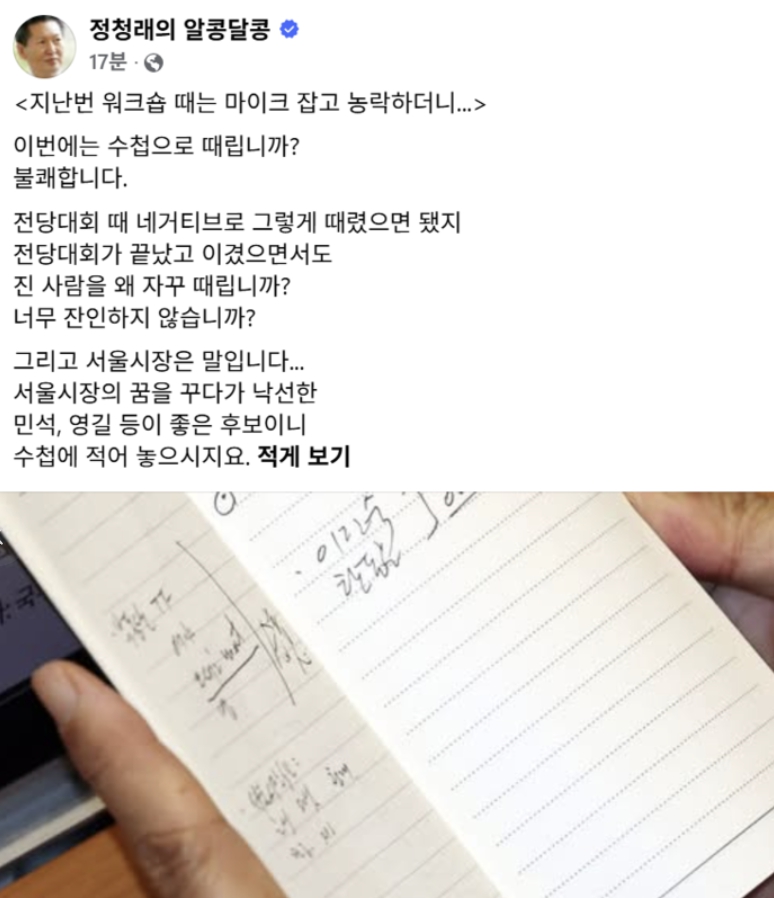 정청래의 알콩달콩
17분 ·
<지난번 워크숍 때는 마이크 잡고 농락하더니...>
이번에는 수첩으로 때립니까?
불쾌합니다.
전당대회 때 네거티브로 그렇게 때렸으면 됐지
전당대회가 끝났고 이겼으면서도
진 사람을 왜 자꾸 때립니까?
너무 잔인하지 않습니까?
그리고 서울시장은 말입니다...
서울시장의 꿈을 꾸다가 낙선한
민석, 영길 등이 좋은 후보이니
수첩에 적어 놓으시지요. 적게 보기